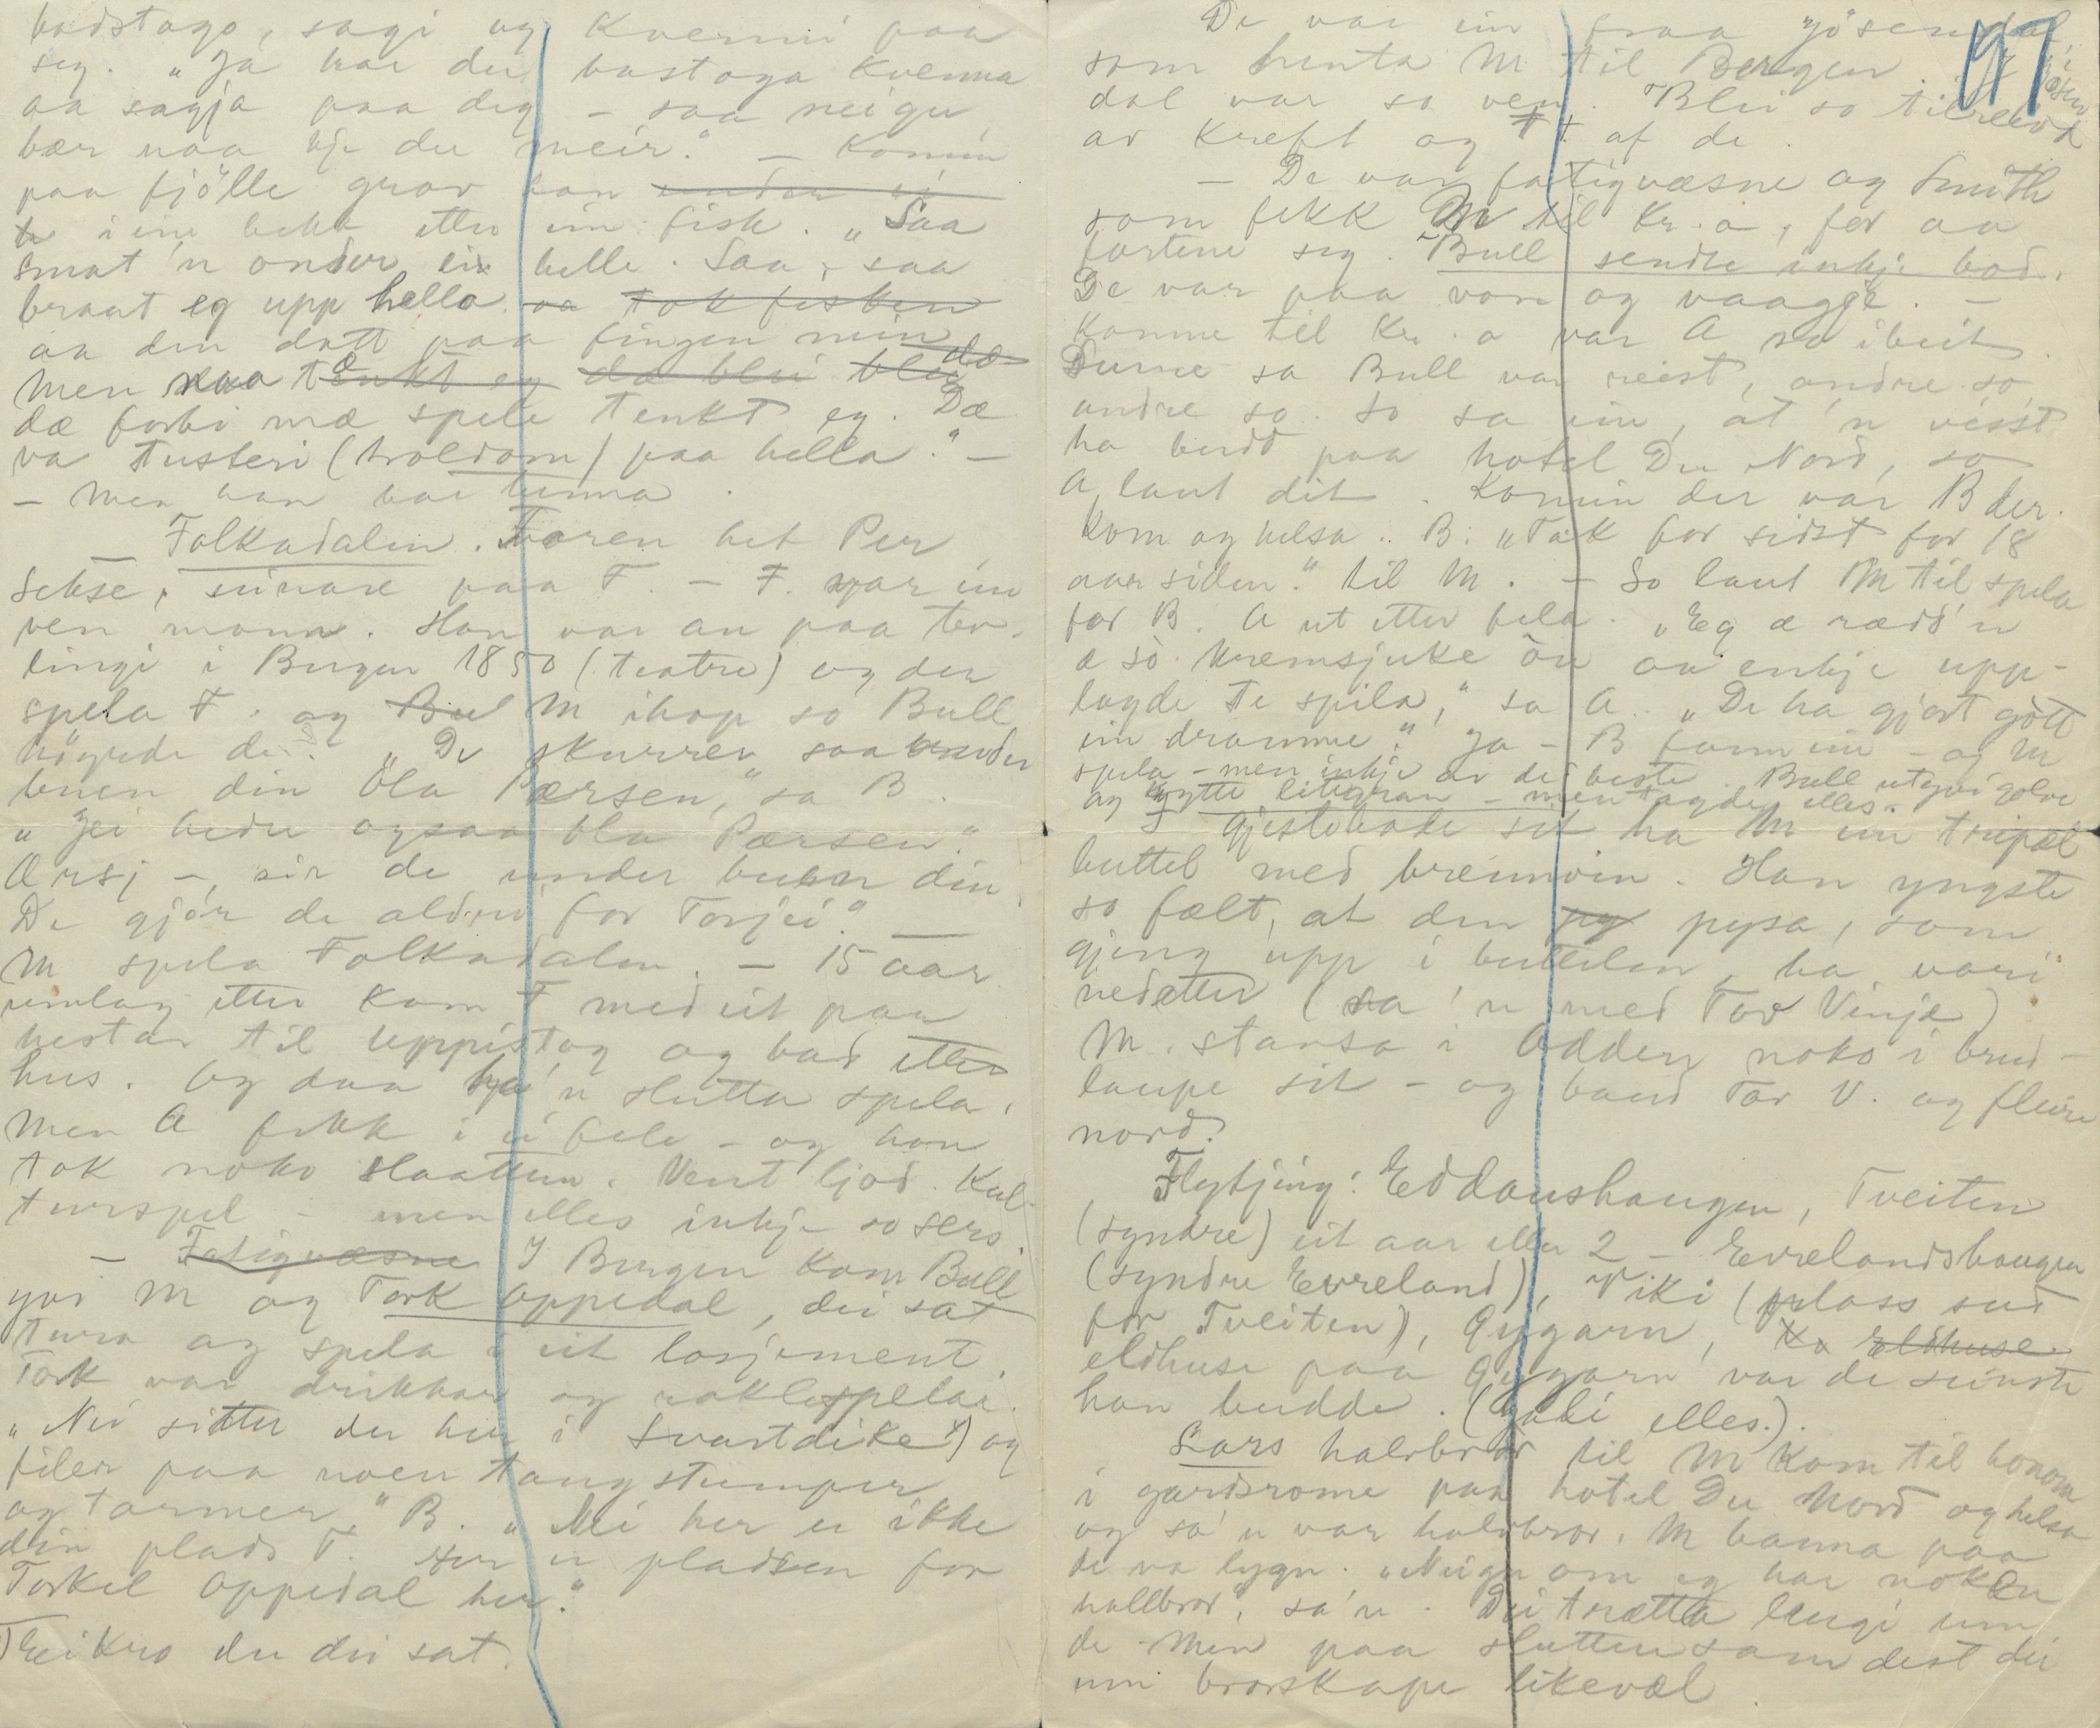 badstogo, sagi og Kvenni paa
seg. „Ja har du bastoga Kvenna
aa sagja paa deg – saa neigu
bær naa kje du meir." – Komin
paa fjölle grov han
i ein bekk etter ein fisk. „Saa
smat 'n onder ei helle. Saa, saa
braut eg upp hella aa tok fisken
aa den datt paa fingen min
Men naa tenkt eg dæ blei blei dæ
dæ forbi mæ spele tenkt eg. Dæ
va tusteri (troldom) paa hella." –
– Men han var
– Folkadalen. Faren het Per
Sekse, seinare paa F. – F. var ein
ven mann. Han var au paa tev-
lingi i Bergen 1850 (teatre) og der
spela F. og Bul M ihop so Bull
högrde dei. „De skurrer saa under
buen din Ola Pærsen," sa B.
„Jei heder ogsaa Ola Pærsen."
Ærsj –, sir de under buen din,
De gjör de aldrei for Torjei."
M spela Folkadalen. – 15 aar
umlag etter kom F med eit par
hestar til Uppistog og bad etter
hus. Og daa ha 'n slutta spela,
Men A fekk i ei fele – og han
tok noko slaatten. Vent ljod. Kul-
turspel – men elles inkje so sers.
– Fatigvæsne I Bergen kom Bull
yvi M og Tork Oppedal, dei sat
tura og spela i eit losjement.
Tork var drikkar og raklespelar.
„Nei sitter du her i Svartdike x) og
filer paa noen taugstumper
og tarmer," B. „Nei her er ikke
din plads T. Her er pladsen for
Torkel Oppedal her."
x) Ei kro der dei sat.
97
De var ein fraa Jösendal,
som henta M til Bergen. I Jösen
dal var so ven. Blei so tilreidd
av Kreft og † af de.
– De var fatigvæsne og Smith
som fekk M til Kr.a, for aa
fortene seg. Bull sendte inkje bod.
De var paa von og vaagge. –
Komne til Kr.a var A so ibeit.
Sume sa Bull var reist, andre so,
andre so. So sa ein, at 'n visst
ha budd paa hotel Du Nord, so
A laut dit. Komin der var B der.
Kom og helsa. B: „Tak for sidst for 18
aar siden." til M. – So laut M til spela
for B. A ut etter fela. „Eg æ rædd 'n
æ so kremsjuke ön aa enkje upp-
lagde te spila," sa A. „De ha gjort gött
ein dramme." Ja – B fann ein – og M
spela – men inkje av dei beste. Bull utyvi golve
og lytte litegran – men tagde elles.
I gjestebode sit ha M ein tripæl
buttel med brennvin. Han yngste
so fælt, at den py pysa, som
gjeng upp i buttelen, ha vori
nedetter (sa 'n med Tov Vinje)
M. stansa i Odden noko i brud-
laupe sit – og baud Tov V. og fleire
nord.
Flytjing: Eddanshaugen, Tveiten
(syndre) eit aar eller 2 – Evrelandshaugen
(syndre Evreland), Viki (plass sud
for Tveiten), Gygarn, Ka Eldhuse
eldhuse paa Gygarn var de seinste
han budde. (Gali elles.).
Lars halvbror til M kom til honom
i gardsrome paa hotel Du Nord og helsa
og sa 'n var halvbror. M banna paa
de va lygn. „Neigu om eg har noken
hallbror," sa 'n. Dei trætta lengi um
de. Men paa slutten samdest dei
um brorskape likevæl.